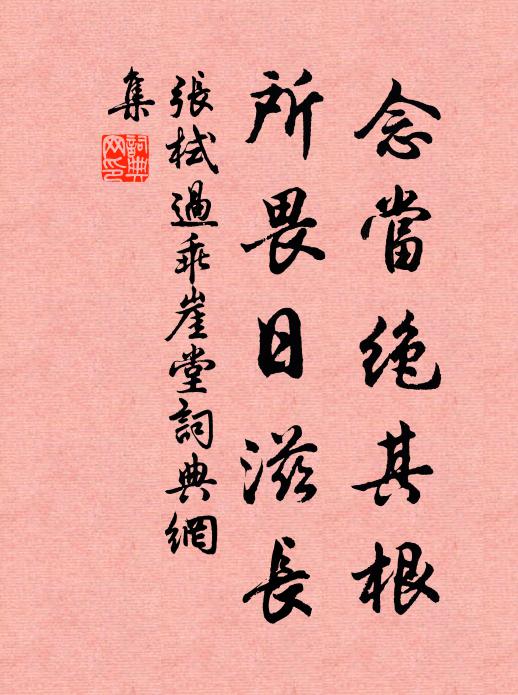 念當絶其根
所畏日滋長
張栻過乖崖堂詞典網
集
詞典
网印